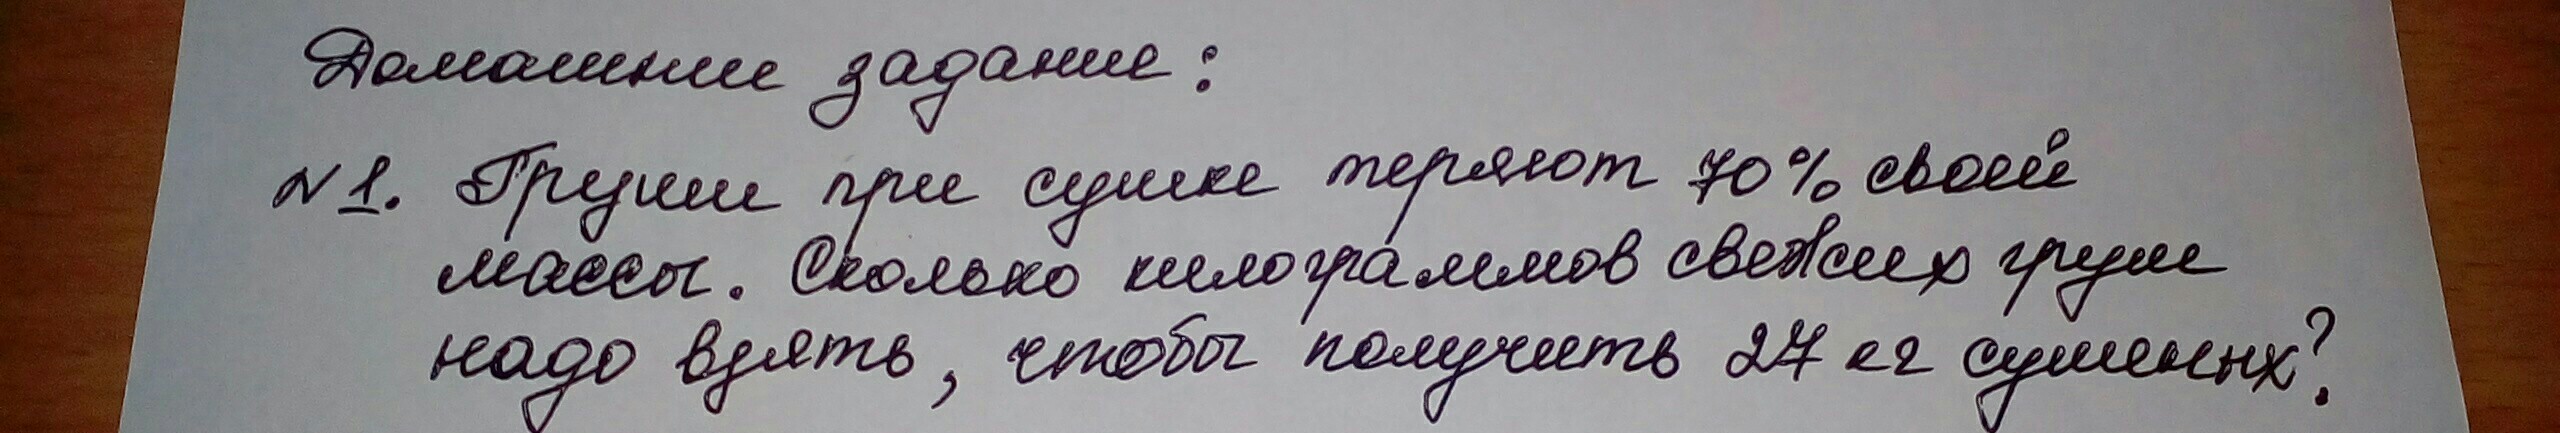 Домашние задание:
№1. Груши при сушке теряют 70% своей
массы. Сколько килограммов свежих груш
надо взять, чтобы получить 27 кг сушеных?